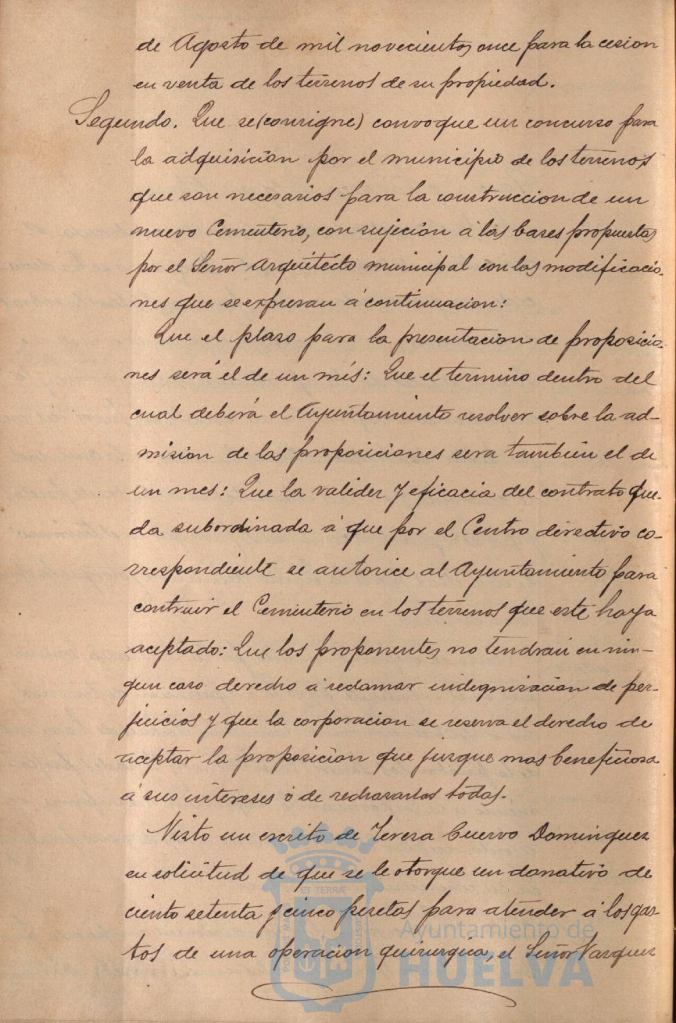 de Agosto de mil novecientos once para la cesion
en venta de los terrenos de su propiedad.
Segundo. Que se (consigne) convoque un concurso para
la adquisicion por el municipio de los terrenos
que son necesarios para la construccion de un
nuevo Cementerio, con sujeción á las bases propuestas
por el Señor Arquitecto municipal con las modificacio-
nes que se expresan á continuacion:
Que el plaso para la presentacion de proposicio-
nes será el de un més: Que el termino dentro del
cual deberá el Ayuntamiento resolver sobre la ad-
mision de las proposiciones sera también el de
un mes: Que la validez y eficacia del contrato que-
da subordinada á que por el Centro directivo co-
rrespondiente se autorice al Ayuntamiento para
contruir el Cementerio en los terrenos que este haya
aceptado: Que los proponentes no tendrán en nin-
gun caso derecho á reclamar indegnizacion de per-
juicios y que la corporacion se reserva el derecho de
aceptar la proposicion que jusgue mas beneficiosa
á sus intereses ó de rechasarlas todas.
Visto un escrito de Teresa Cuervo Dominguez
en solicitud de que se le otorgue un donativo de
ciento setenta y cinco pesetas para atender á los gas-
tos de una operacion quirurgica, el Señor Vazquez
Ayuntamiento de
HUELVA